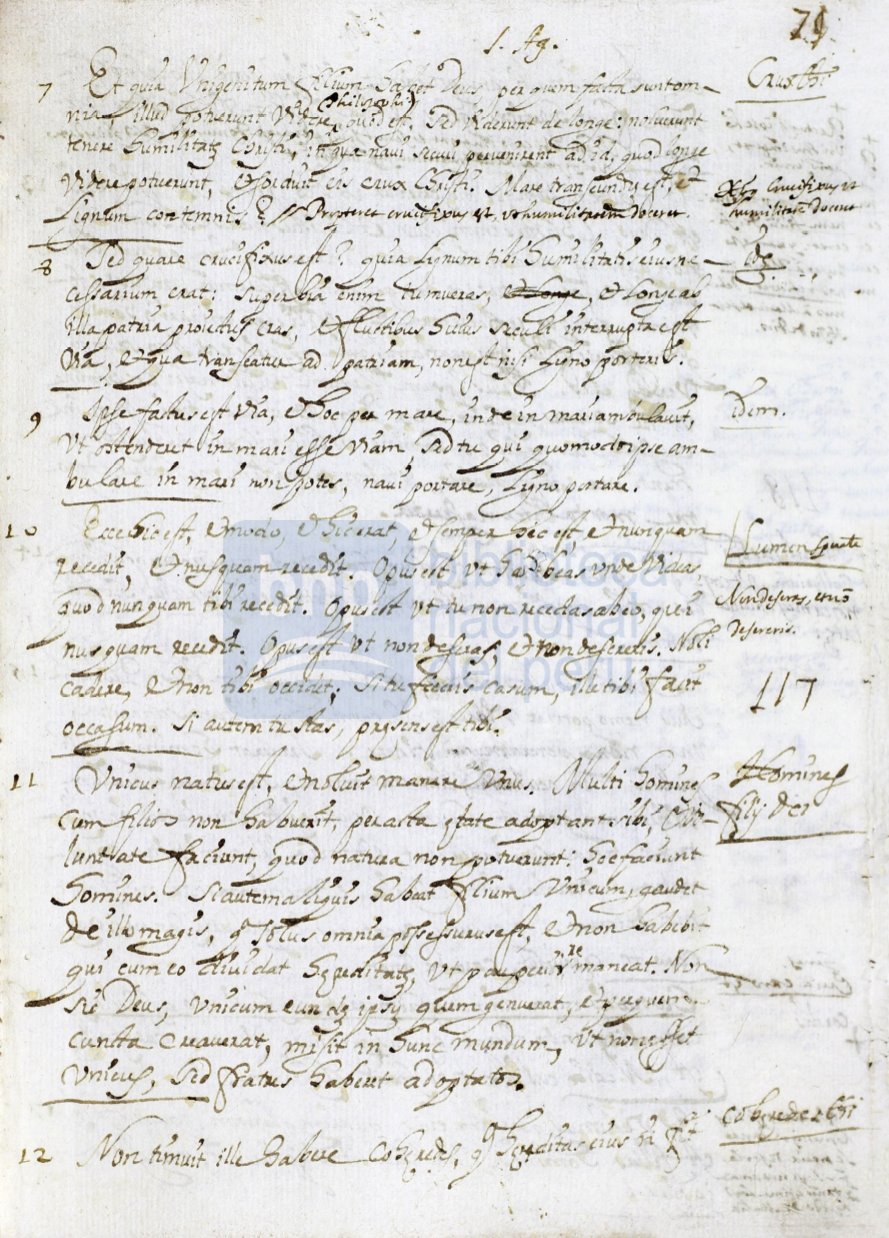 S. Ag.
71
7 Et quia Unigenitum filium habet Deus per quem facta sunt om-
nia, illud potuerunt videre Philosophi, quod est, sed viderunt de longe: noluerunt
tenere humilitatē Christi, in qua navi securi pervenirent ad id, quod longe
videre potuerunt, et sorduit eis crux Christi. Mare transeundū est, et
Lignum contemnis? // Propterea crucifixus est, ut humilitatem doceret.
Crux Chri
Xpς Crucifixus ut
humilitatē doceret
8 Sed quare crucifixus est? quia Lignum tibi humilitatis eius ne-
cessarium erat: superbia enim tumueras, et longe, et Longe ab
illa patria proiectus eras, et fluctibus huius saeculi interrupta est
via, et qua transeatur ad patriam, non est nisi Ligno porteris.
9 Ipse factus est via, et hoc per mare, inde in mari ambulavit,
ut ostenderet in mari esse viam, sed tu qui quomodo ipse am-
bulare in mari non potes, navi portare, Ligno portare.
idem.
10 Ecce hic est, et modo, et hic erat, et semper hic est et nunquam
recedit, et nusquam recedit. Opus est ut habeas unde videas,
quod nunquam tibi recedit. Opus est ut tu non recedas ab eo, qui
nusquam recedit. Opus est ut non deseras, et non desereris. Noli
cadere, et non tibi occidet; si tu feceris casum, ille tibi facit
occasum. Si autem tu stas, praesens est tibi.
Lumen
Non deseras, et nō
desereris.
117
11 Unicus natus est, et noluit manere unus. Multi homines
cum filios non habuerint, peracta ętate adoptant sibi, et vo-
luntate faciunt, quod natura non potuerunt: hoc faciunt
homines. Si autem aliquis habeat filium Unicum, gaudet
de illo magis, q solus omnia possessurus est, et non habebit
qui cum eo dividat hęreditatē, ut pauperior remaneat. Non
sic Deus, unicum eundē ipsū quem genuerat, et per quem
cuncta creaverat, misit in hunc mundum, ut non esset
Unicus, sed fratres haberet adoptatos.
Homines
filij dei
12 Non timuit ille habere Cohęredes, q hęreditas eius nō fit
Cohęredes Chri